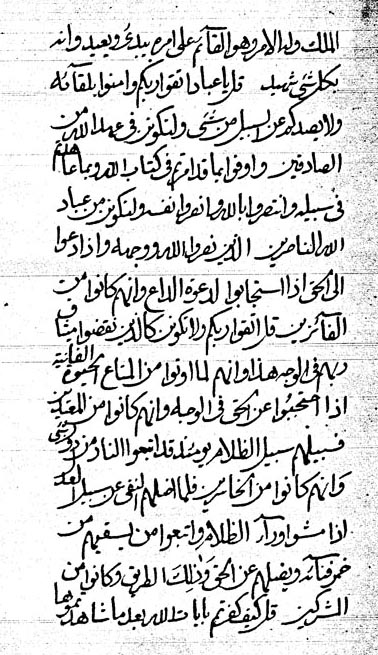 الملك وله الامر وهو القائم على امره يبدء ويعيد وانه
بكل شئ شهيد قل يا عباد اتقوا ربكم وامنوا بلقائه
ولا يصدكم عن السبيل من شئ ولتكونن فى عهد الله من
الصادقين واوفوا بما قدامرتم فى كتاب الله وبما عاهدتم
فى سبيله وانتصروا بالله وانصروا نفسه ولتكونن من عباد
الله الناصرين الذين نصروا الله ووجهه واذا دعوا
الى الحق اذا استجابوا لدعوة الداع وانهم كانوا من
الفائزين قل اتقوا ربكم ولا تكونن كالذين نقضوا ميثاق
ربهم فى الوجه هذا وانهم لما اوتوا من المتاع الحيوة الفانية
اذا احتجبوا عن الحق فى الوجه وانهم كانوا من
فسبيلهم سبيل الظلام يومئذ قد اتبعوا النار من
وانهم كانوا من الخاسرين فلما اضلهم النفى عن سبيل العدل
اذا مشوا ورآء الظلام واتبعوا من يسقيهم من
خمر فنآئه ويضلهم عن الحق وذلك الطريق وكانوا من
المشركين قل كيف كفرتم بايات الله بعد ما شاهدتموها